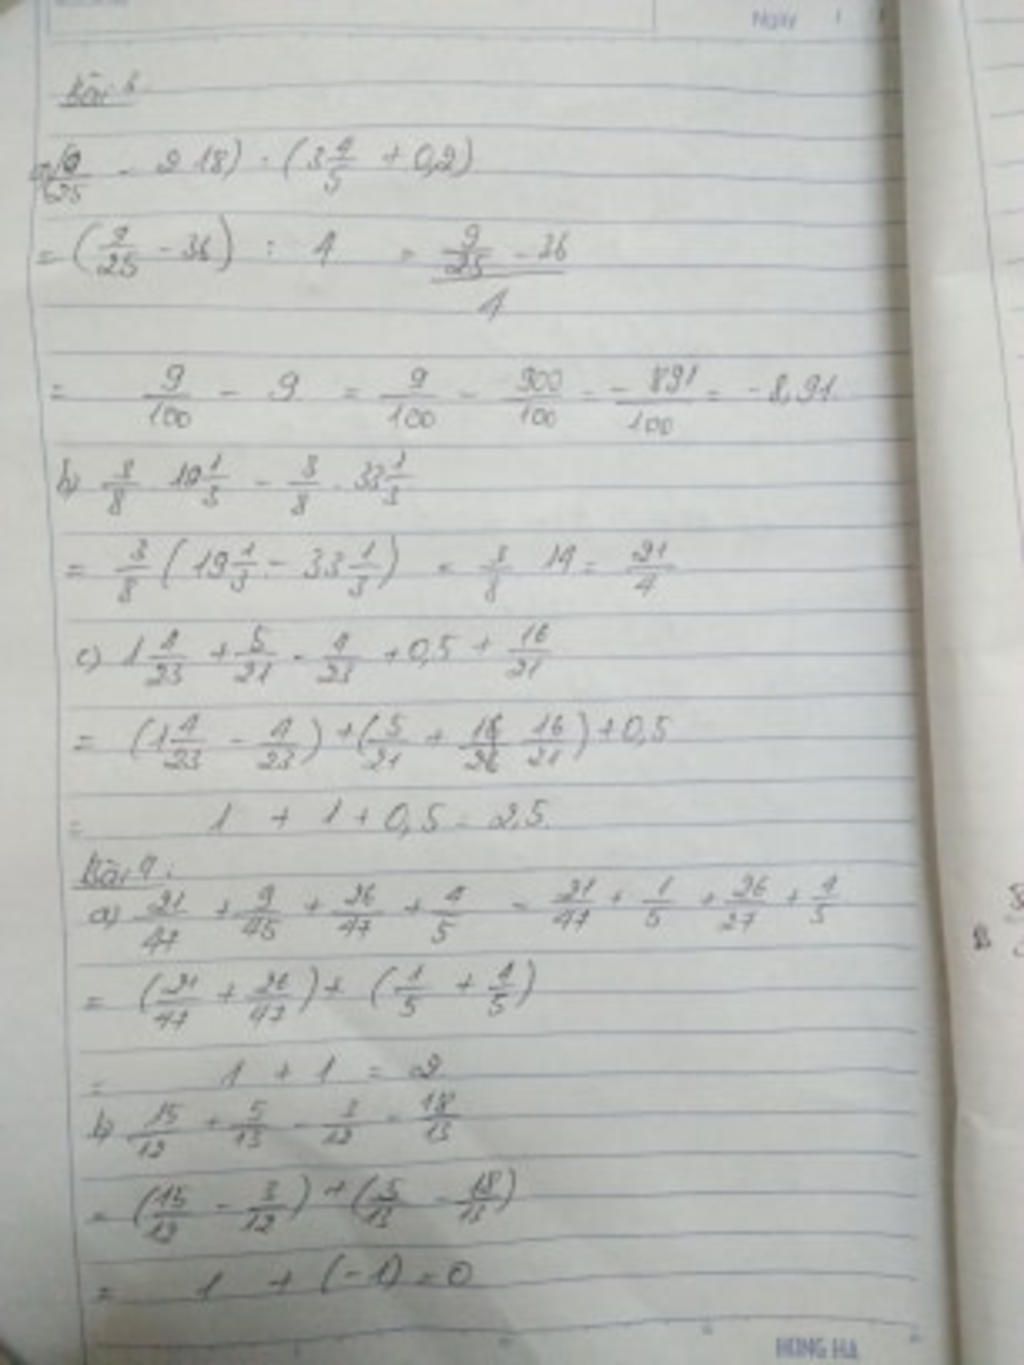 Ngày
Bài 6
a) (9/25 - 2.18) : (3 4/5 + 0,2)
= (9/25 - 36) : 4 = (9/25 - 36)/4
= 9/100 - 9 = 9/100 - 900/100 = - 891/100 = -8,91
b) 3/8 . 19 1/3 - 3/8 . 33 1/3
= 3/8 (19 1/3 - 33 1/3) = 3/8 14 = 21/4
c) 1 4/23 + 5/21 - 4/23 + 0,5 + 16/21
= (1 4/23 - 4/23) + (5/21 + 16/21) + 0,5
= 1 + 1 + 0,5 = 2,5
Bài 9:
a) 21/47 + 9/45 + 26/47 + 4/5 = 21/47 + 1/5 + 26/27 + 4/5
= (21/47 + 26/47) + (1/5 + 4/5)
= 1 + 1 = 2
b) 15/12 + 5/13 - 3/12 - 18/13
= (15/12 - 3/12) + (5/13 - 18/13)
= 1 + (-1) = 0
HONG HA